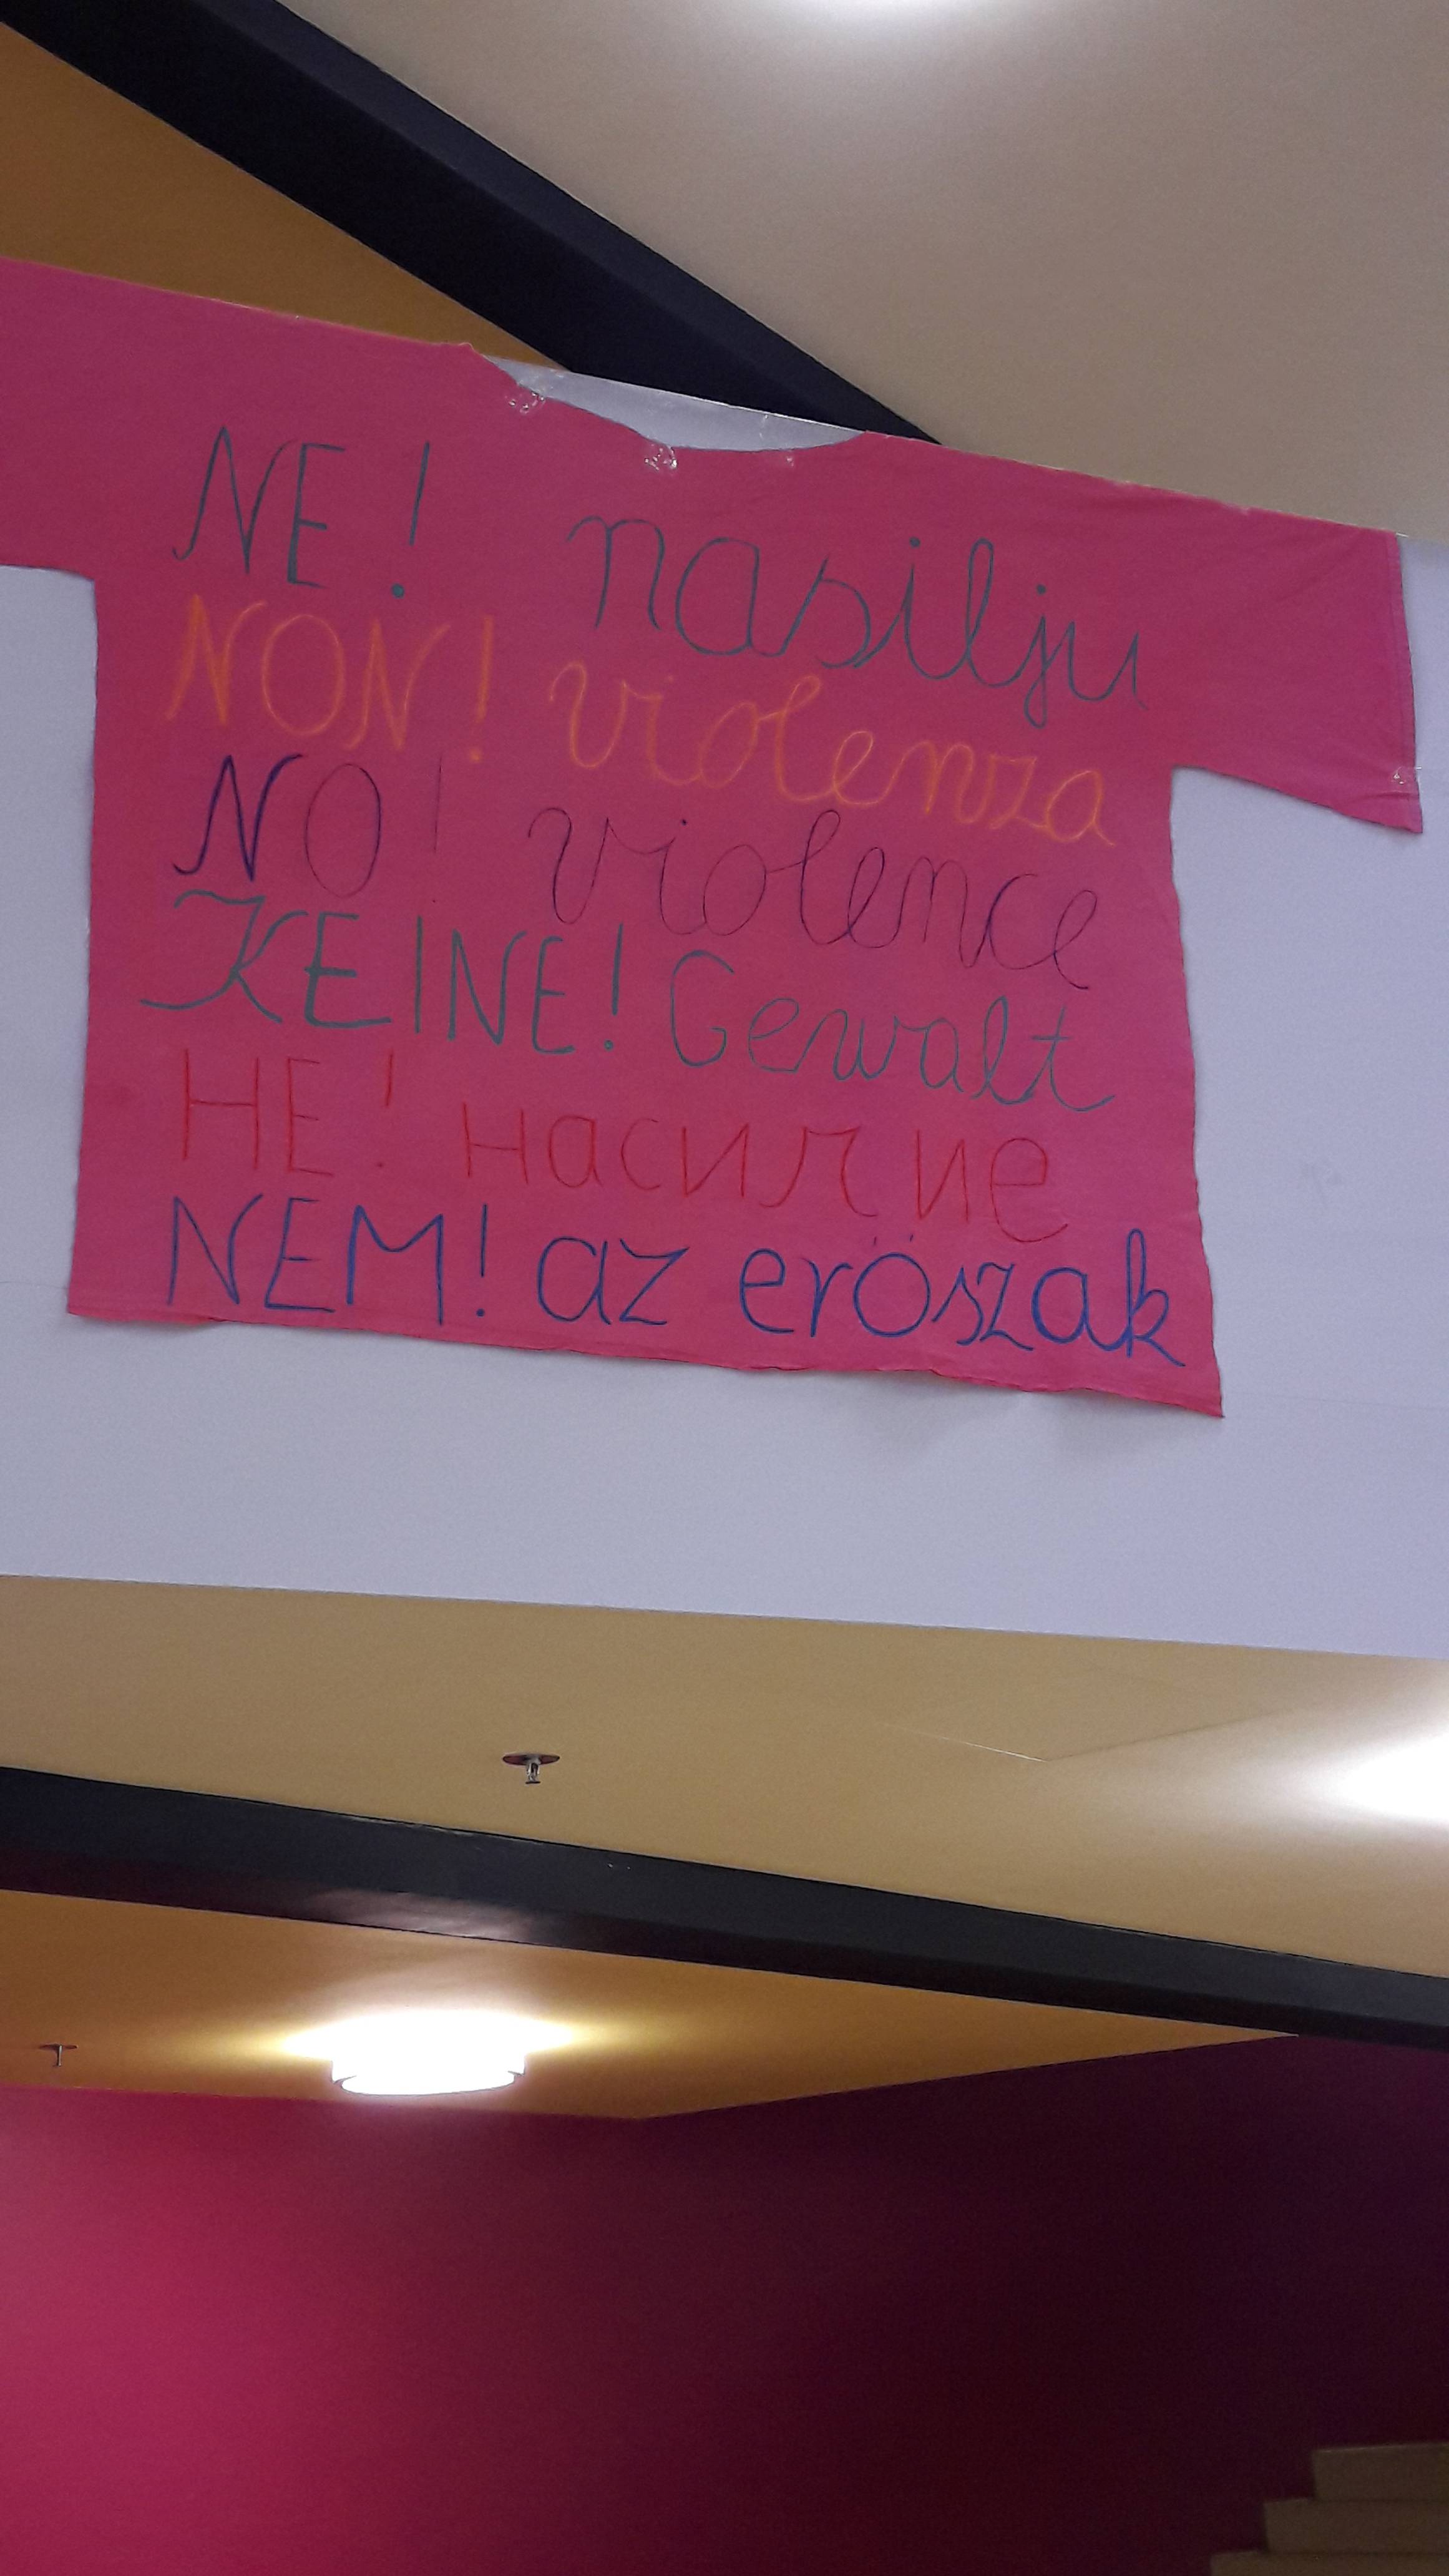 NE! nasilju
NON! violenza
NO! violence
KEINE! Gewalt
НЕ! насилие
NEM! az eröszak